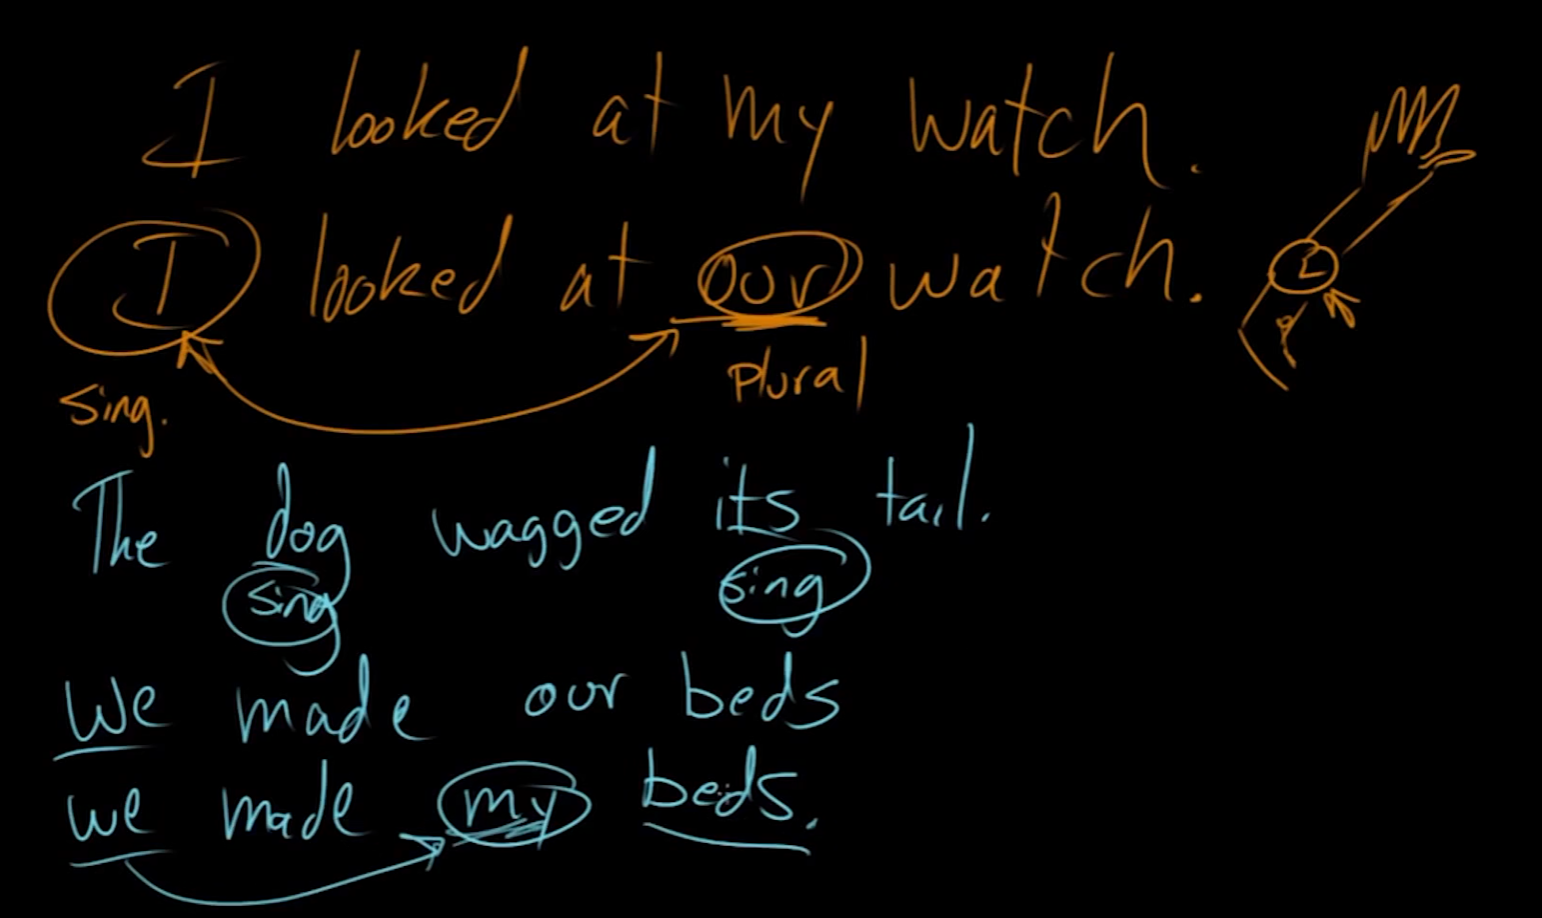 I looked at my watch.
I looked at our watch.
sing. plural
The dog wagged its tail.
sing sing
We made our beds
we made my beds.